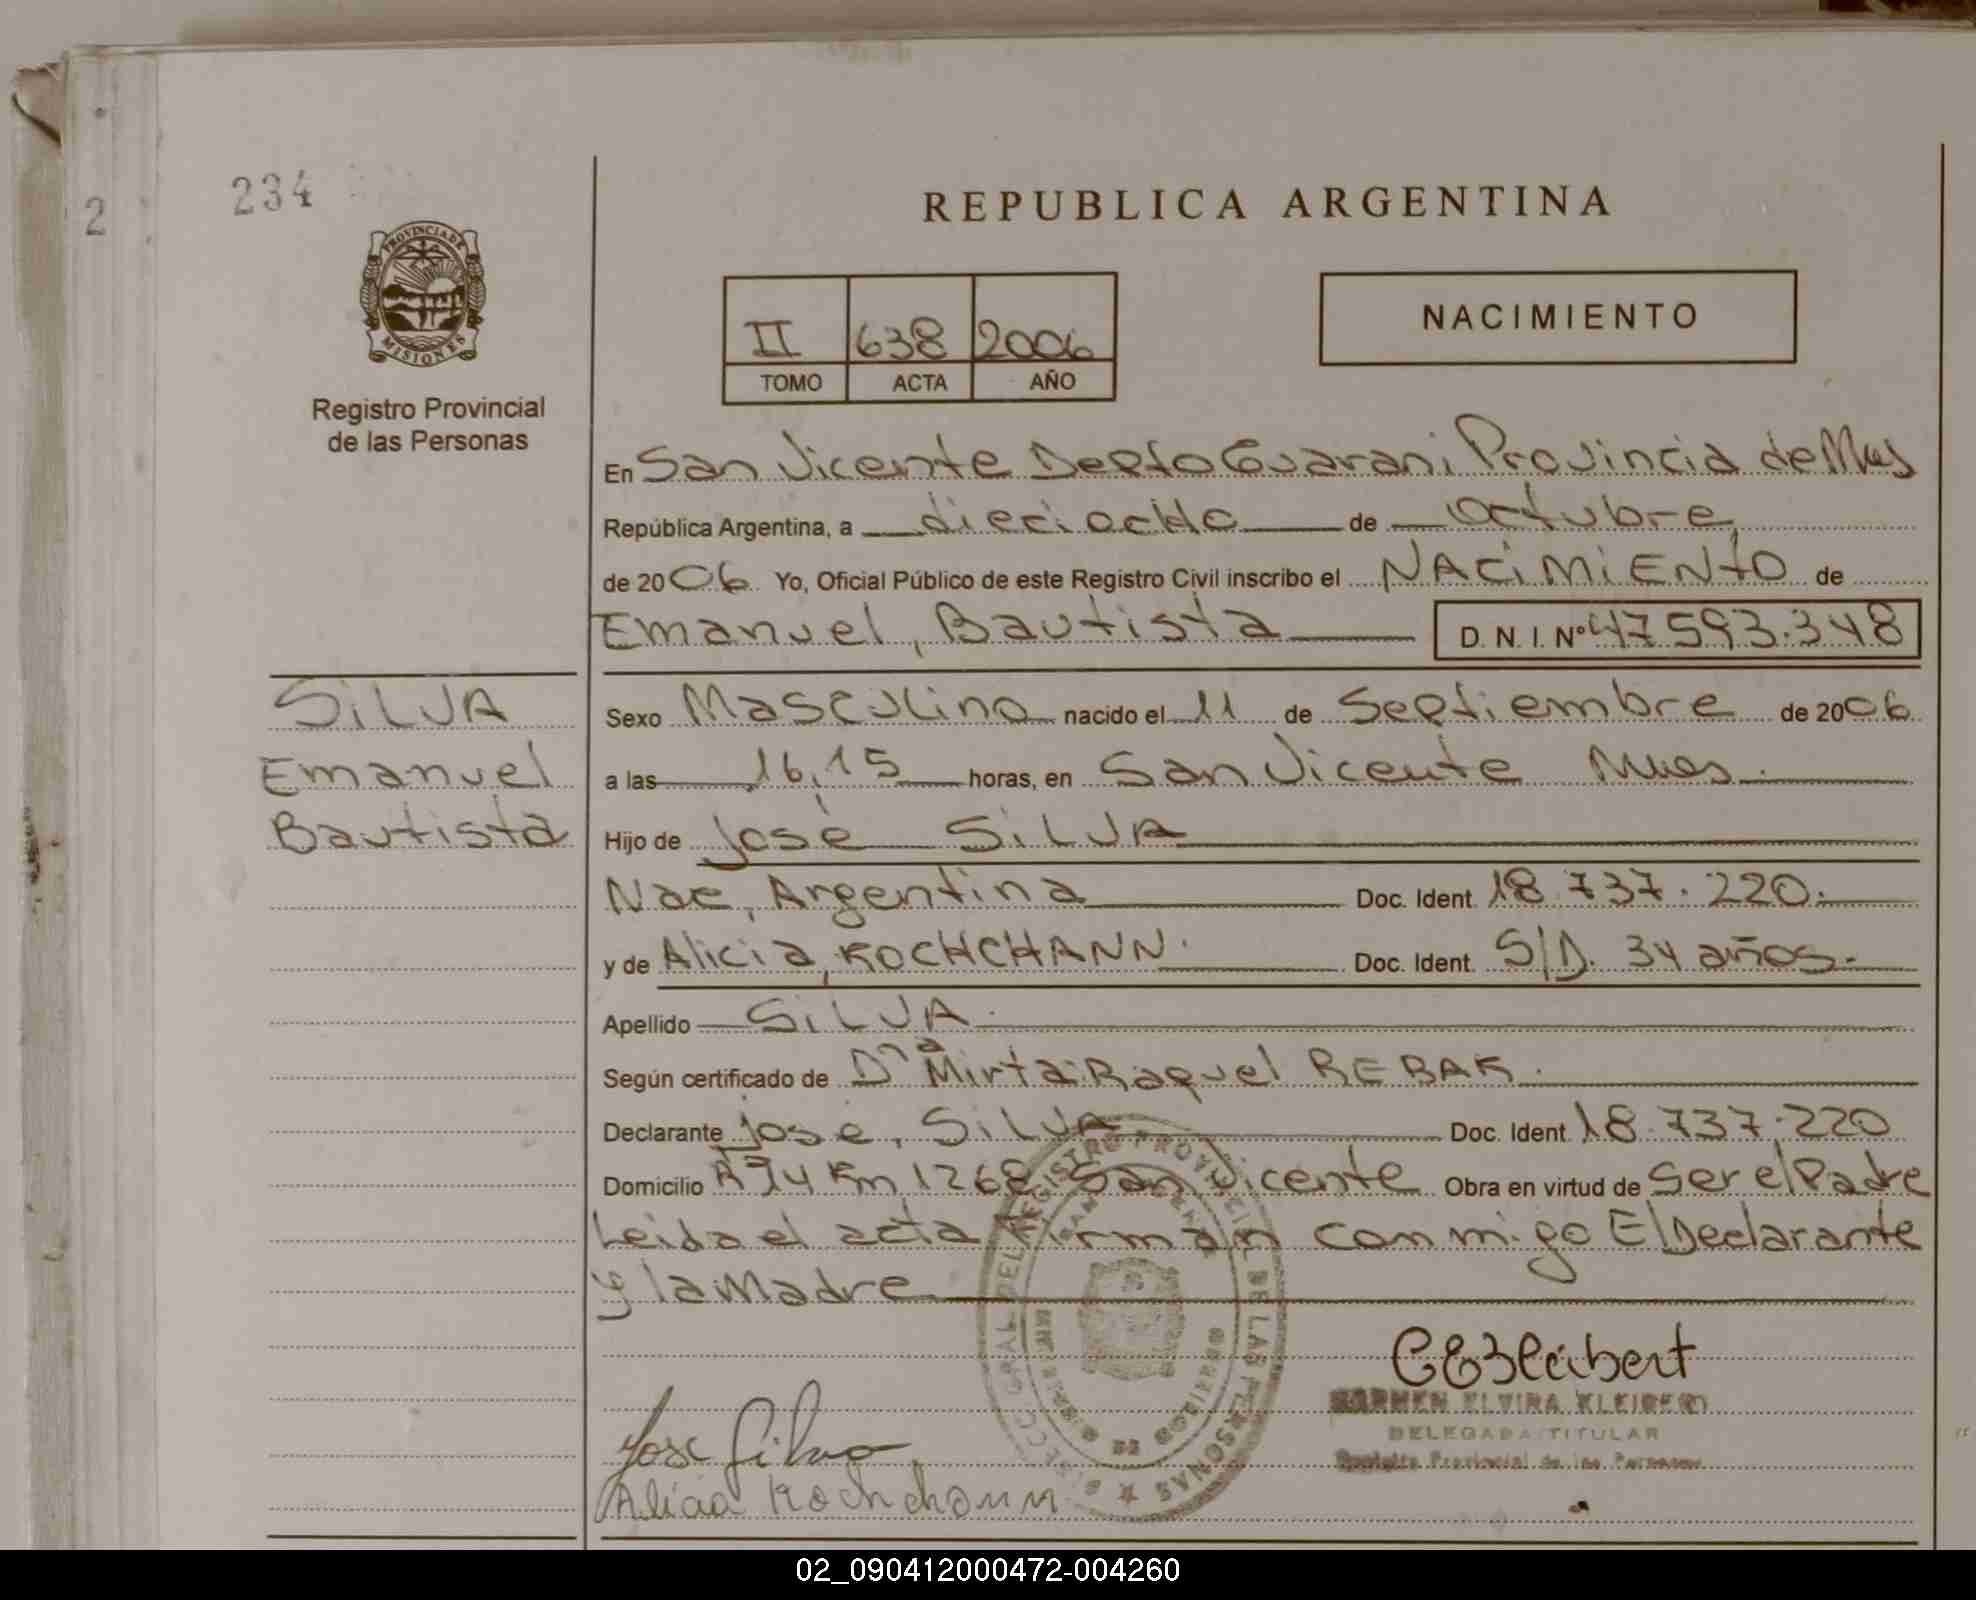 2
234
PROVINCIA DE
MISIONES
Registro Provincial
de las Personas
REPUBLICA ARGENTINA
II 638 2006
TOMO ACTA AÑO
NACIMIENTO
En San Vicente Depto Guarani Provincia de Mnes
República Argentina, a dieciocho de Octubre
de 2006 Yo, Oficial Público de este Registro Civil inscribo el NACIMIENTO de
Emanuel, Bautista D. N. I. Nº 47593.348
SILVA
Emanuel
Bautista
Sexo Masculino nacido el 11 de Septiembre de 2006
a las 16,15 horas, en San Vicente Mnes.
Hijo de José SILVA
Nac, Argentina Doc. Ident. 18.737.220.
y de Alicia, KOCHCHANN. Doc. Ident. S/D. 34 años.
Apellido SILVA.
Según certificado de Dña Mirta Raquel REBAK.
Declarante José, SILVA Doc. Ident 18.737.220
Domicilio Km 1268 San Vicente Obra en virtud de Ser el Padre
Leida el acta Firman conmigo El Declarante
y la Madre
DIRECC. GRAL. DEL REGISTRO PROVINCIAL DE LAS PERSONAS
CEKleibert
CARMEN ELVIRA
DELEGADA TITULAR
Registro Provincial de las Personas
Jose Silva
Alicia Kochchann
02_090412000472-004260